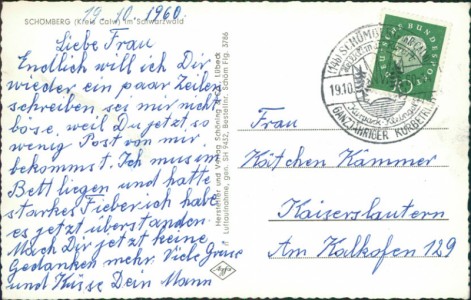 SCHÖMBERG (Kreis Calw) im Schwarzwald
19.10.1960.
Liebe Frau
Endlich will ich Dir
wieder ein paar Zeilen
schreiben sei mir nicht
böse, weil Du jetzt so
wenig Post von mir
bekommst. Ich muss im
Bett liegen und hatte
starkes Fieber ich habe
es jetzt überstanden.
Mach Dir jetzt keine
Gedanken mehr. Viele Grüsse
und Küsse Dein Mann
Hersteller und Verlag Schöning & Co., Lübeck
Luftaufnahme, gen. SH 9452, Bestellnr. Schön Flg. 3786
Agfa
SCHÖMBERG
19.10.
GANZJÄHRIGER KURBETRIEB
DEUTSCHE BUNDESPOST
10
Frau
Kätchen Kämmer
Kaiserslautern
Am Kalkofen 129